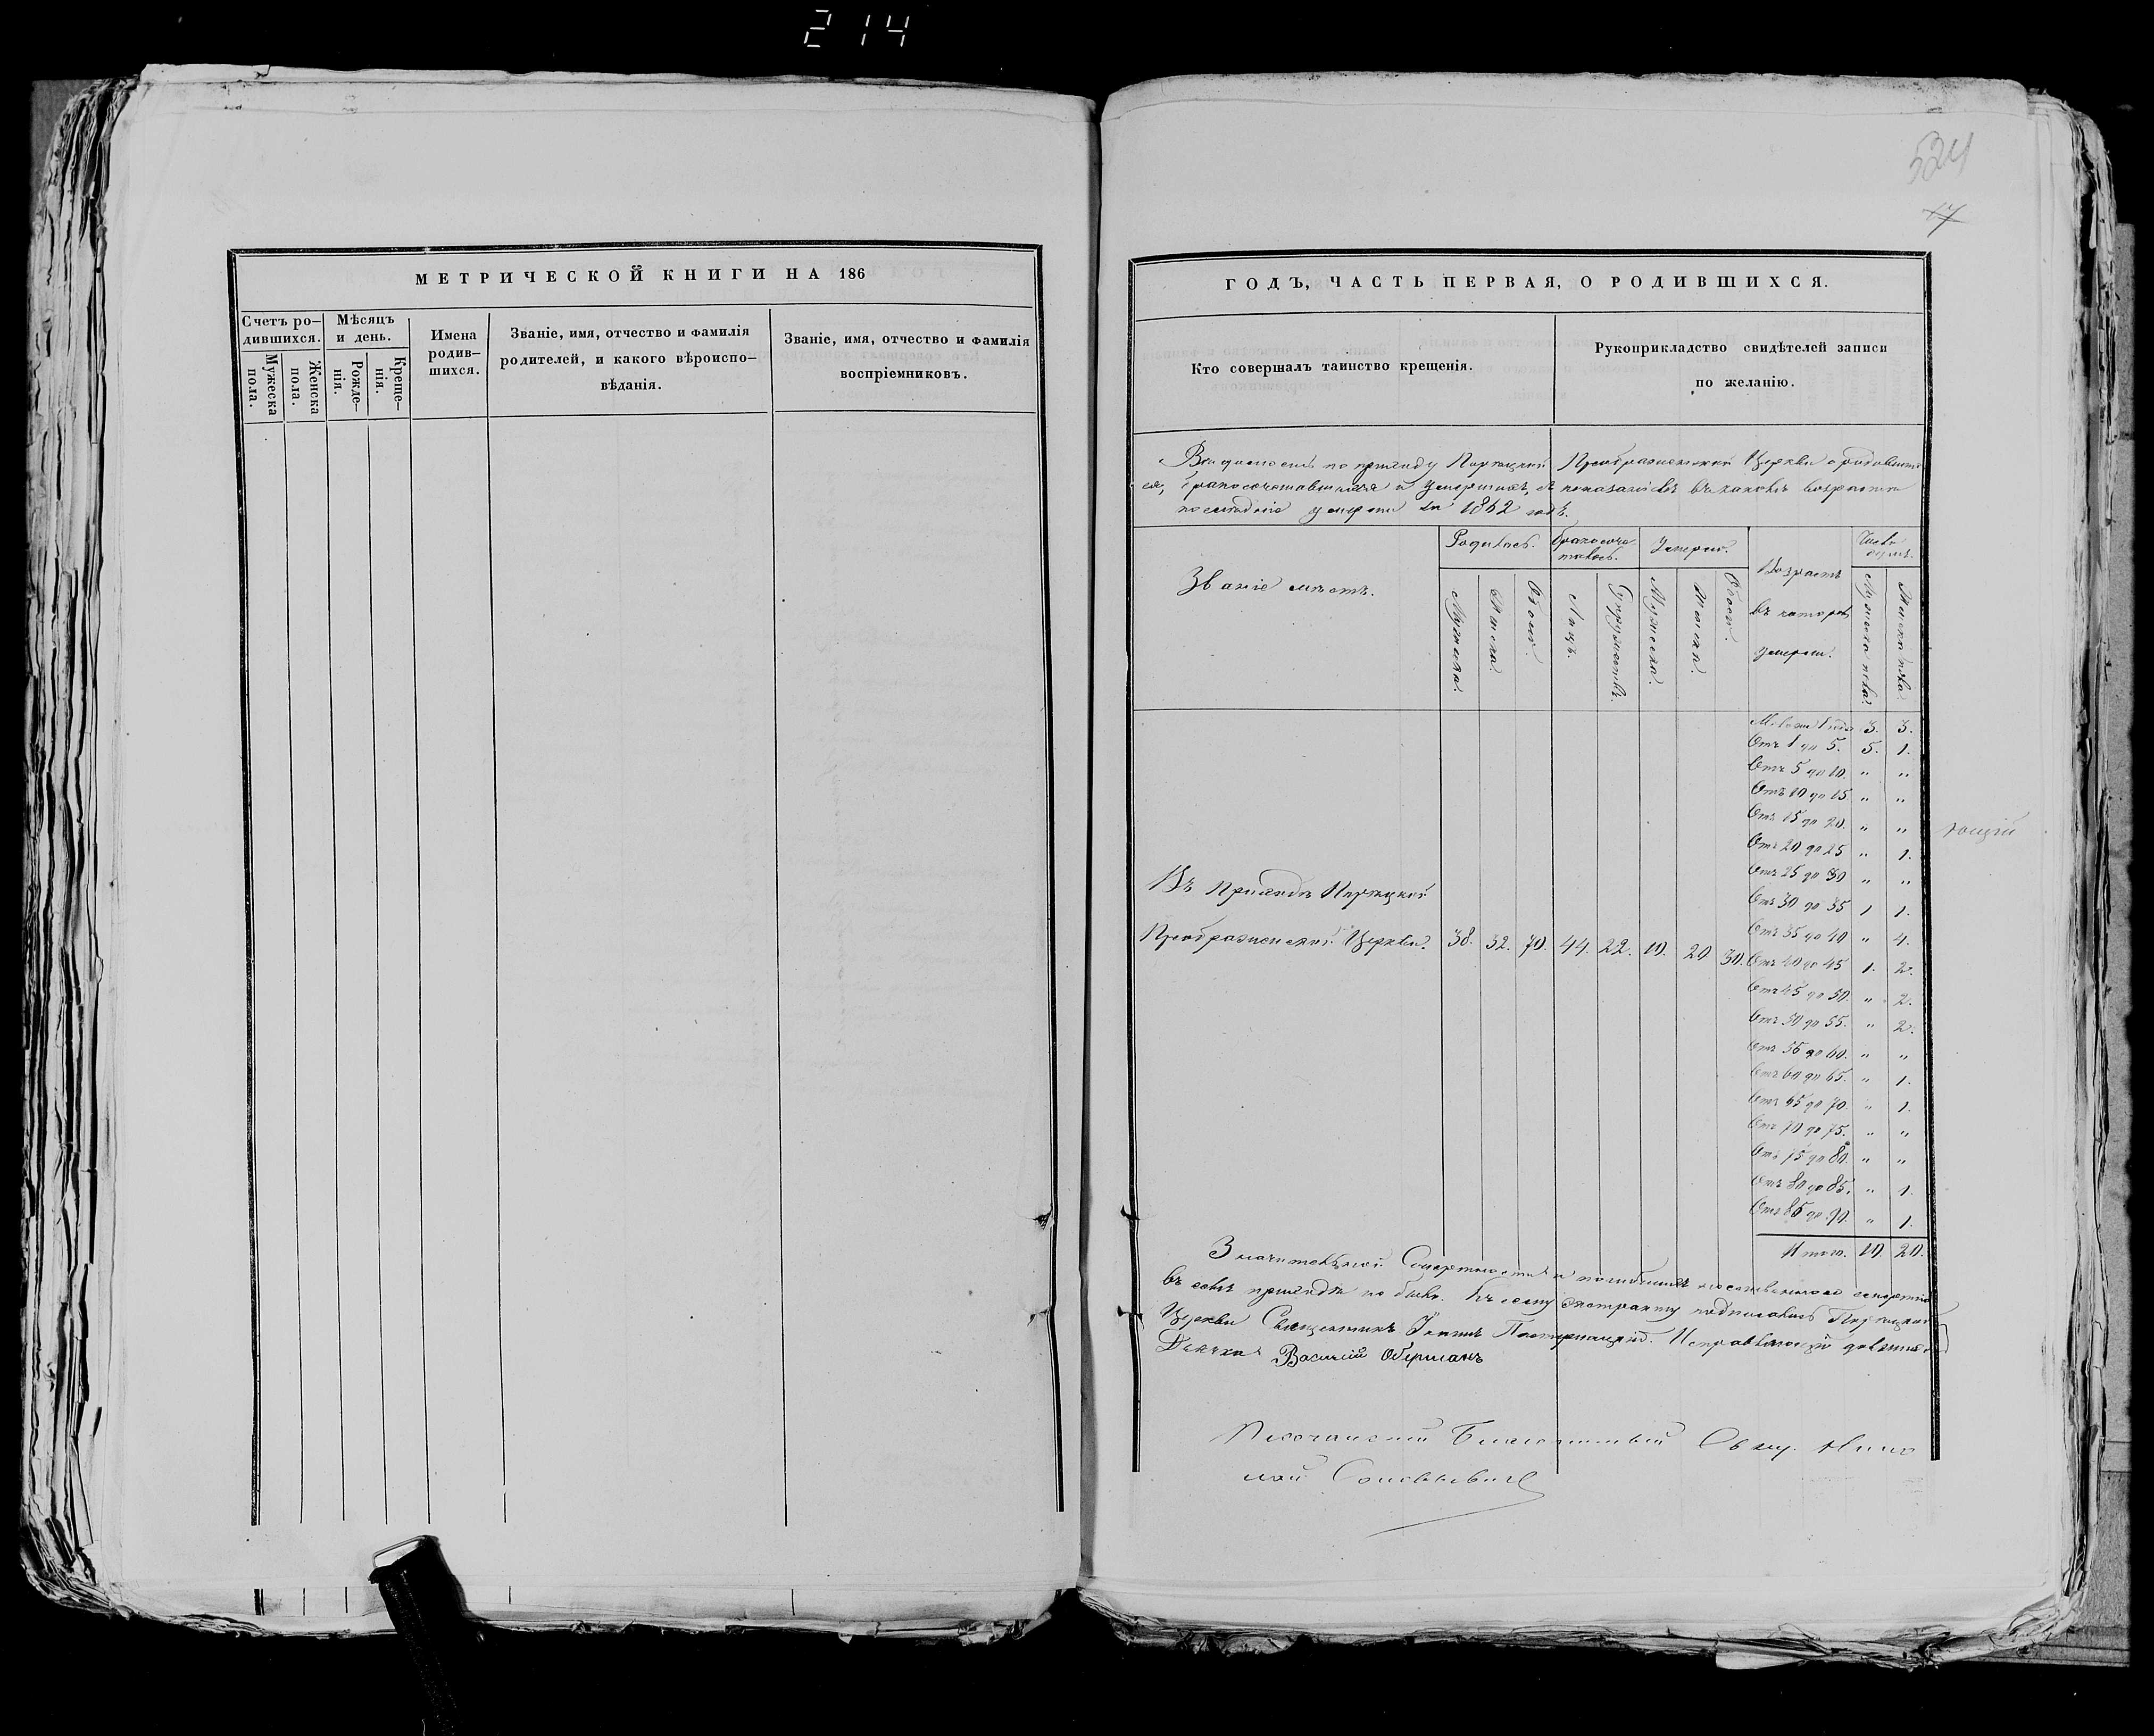 214
МЕТРИЧЕСКОЙ КНИГИ НА 186
Счетъ ро-
дившихся.
Мужеска
пола.
Женска
пола.
Мѣсяцъ
и день.
Рожде-
нія.
Креще-
нія.
Имена
родив-
шихся.
Званіе, имя, отчество и фамилія
родителей, и какого вѣроиспо-
вѣданія.
Званіе, имя, отчество и фамилія
воспріемниковъ.
524
17
ГОДЪ, ЧАСТЬ ПЕРВАЯ, О РОДИВШИХСЯ.
Кто совершалъ таинство крещенія.
Рукоприкладство свидѣтелей записи
по желанію.
Вѣдомость по приходу Преображенской Церкви о родивших
ся, бракосочетавшихся и умершихъ, съ показаніемъ въ какомъ возрастѣ
послѣдніе умерли въ 1862 годѣ.
Званіе мѣстъ.
Родилось.
Мужска.
Женска.
Обоего.
Бракосоче-
талось.
Лицъ.
Супружествъ.
Умерло.
Мужеска.
Женска.
Обоего.
Возрастъ
въ которомъ
умерли.
Число
душъ.
Мужеска пола.
Женска пола.
Менѣе 1 года 3. 3.
Отъ 1 до 5. 5. 1.
Отъ 5 до 10. " "
Отъ 10 до 15 " "
Отъ 15 до 20. " "
ющій
Отъ 20 до 25 " 1.
Отъ 25 до 30 " "
Отъ 30 до 35 1 1.
Отъ 35 до 40 " 4.
Отъ 40 до 45 1. 2.
Отъ 45 до 50. " 2.
Отъ 50 до 55. " 2.
Отъ 55 до 60. " "
Отъ 60 до 65. " 1.
Отъ 65 до 70. " 1.
Отъ 70 до 75. " "
Отъ 75 до 80. " "
Отъ 80 до 85. " 1.
Отъ 85 до 90. " 1.
Итого. 10. 20.
Въ приходѣ
Преображенской Церкви. 38. 32. 70. 44. 22. 10. 20 30.
Значительной смертности и погибшихъ неестественною смертію
въ семъ приходѣ не было. Къ сему экстракту подписались
Церкви Священникъ Іоаннъ Исправляющій должность
Дьячка Василій Оберманъ
Песчанскій Благочинный Свящ. Нико
лай